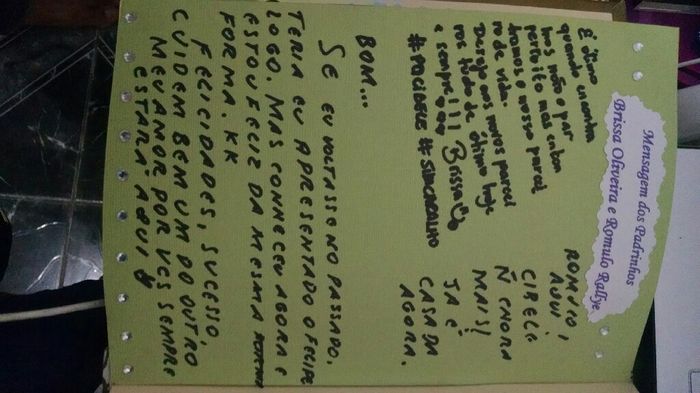 Mensagem dos Padrinhos
Brissa Oliveira e Romulo Rallye
É ótimo
quando encontra
mos não o par
perfeito mas sabon
chamos o nosso parcei
ro de vida.
Desejo aos novos parcei
ros tudo de ótimo hoje
e sempre!!! Brissa
ROMULO,
AQUI
CIBELE
Ñ CHORA
MAIS!
JÁ É
CASADA
AGORA.
BOM...
SE EU VOLTASSE NO PASSADO,
TERIA EU APRESENTADO O FELIPE
LOGO. MAS CONHECEU AGORA E
ESTOU FELIZ DA MESMA
FORMA. KK
FELICIDADES, SUCESSO,
CUIDEM BEM UM DO OUTRO,
MEU AMOR POR VCS SEMPRE
ESTARÁ AQUI